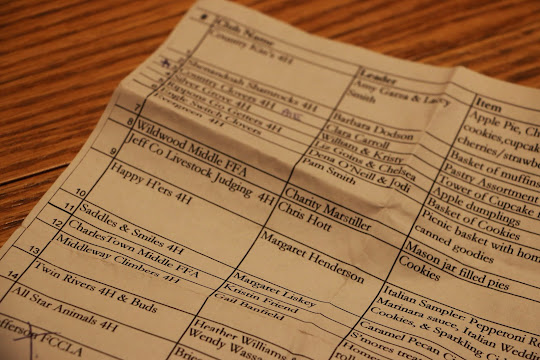 # Club Name
Country Kin's 4H
Shenandoah Shamrocks 4H
Country Clovers 4H
Silver Grove 4H
Clovers 4H
Evergreen 4H
7
8 Wildwood Middle FFA
9 Jeff Co Livestock Judging 4H
Happy H'ers 4H
10
11 Saddles & Smiles 4H
12 CharlesTown Middle FFA
13 Middleway Climbers 4H
Twin Rivers 4H & Buds
14 All Star Animals 4H
FCCLA
Leader
Amy Garza & Lacy
Smith
Barbara Dodson
Clara Carroll
William & Kristy
Liz Goins & Chelsea
Dena O'Neill & Jodi
Pam Smith
Charity Marstiller
Chris Hott
Margaret Henderson
Margaret Liskey
Kristin Friend
Gail Banfield
Heather Williams &
Wendy
Item
Apple Pie,
cookies, cupcak
cherries/strawbe
Basket of muffins
Pastry Assortment
Tower of Cupcake
Apple dumplings
Basket of Cookies
Picnic basket with hom
canned goodies
Mason jar filled pies
Cookies
Italian Sampler: Pepperoni R
Marinara sauce, Italian Wedd
Cookies, & Sparkling
Caramel Pecan
S'mores trea